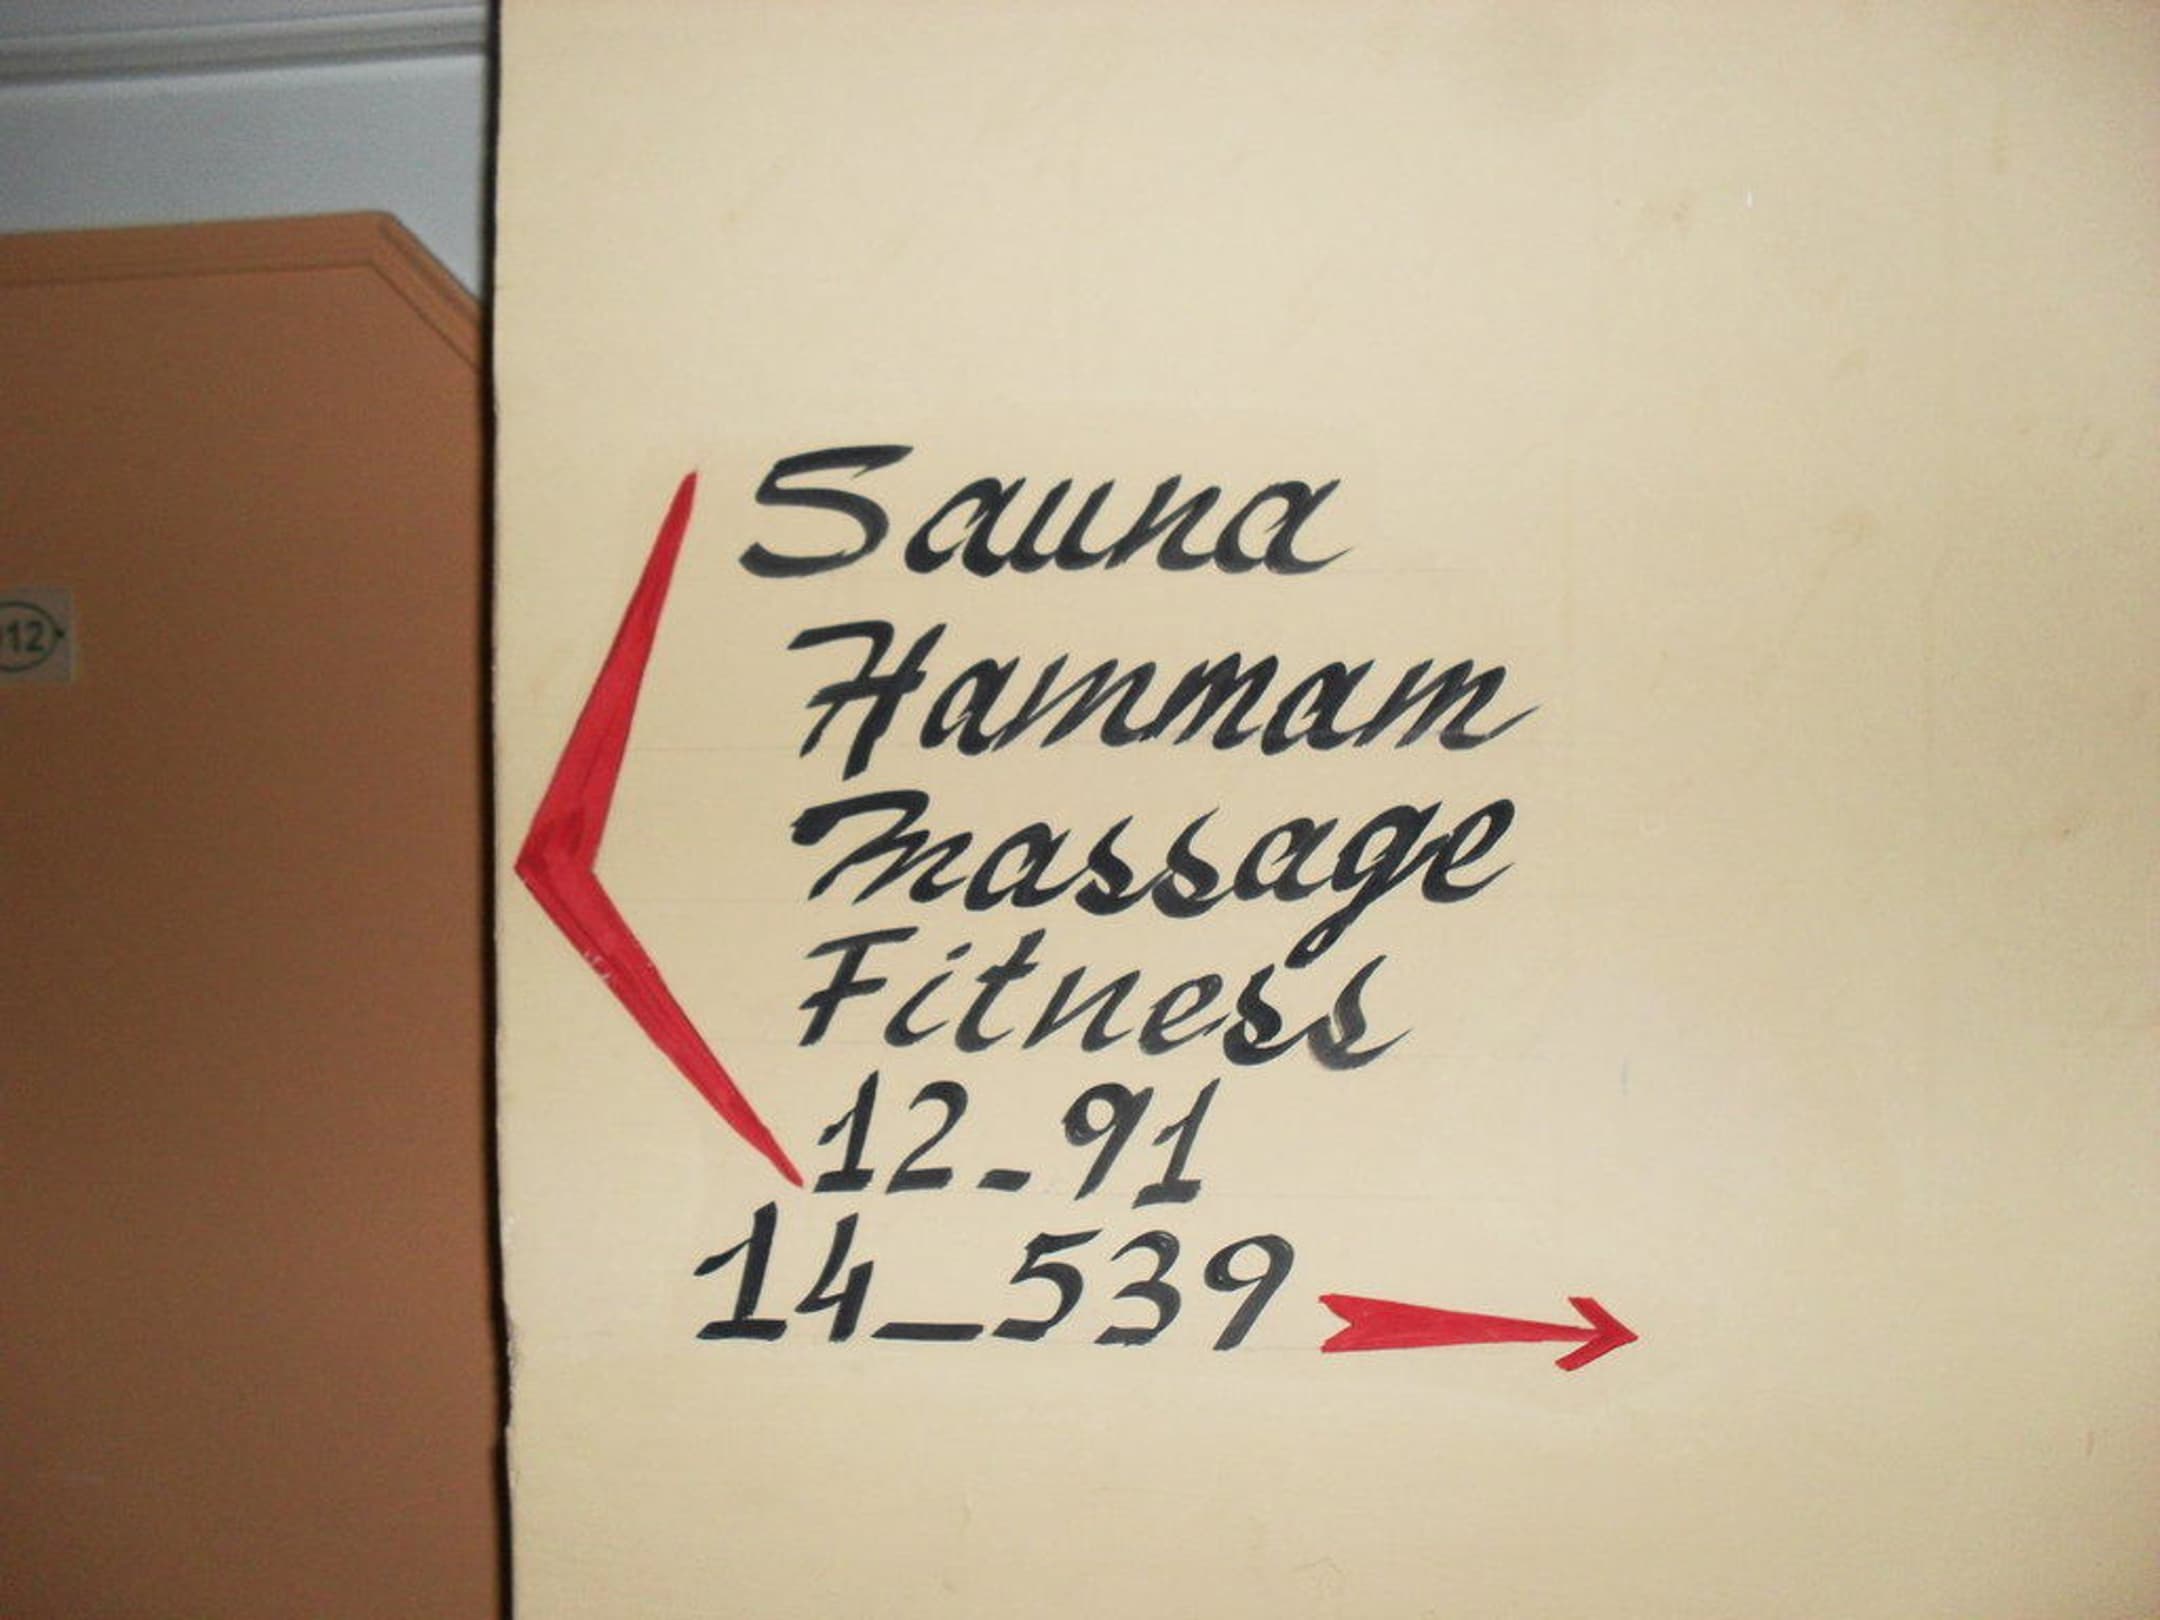 Sauna
Hammam
Massage
Fitness
12-91
14_539
12